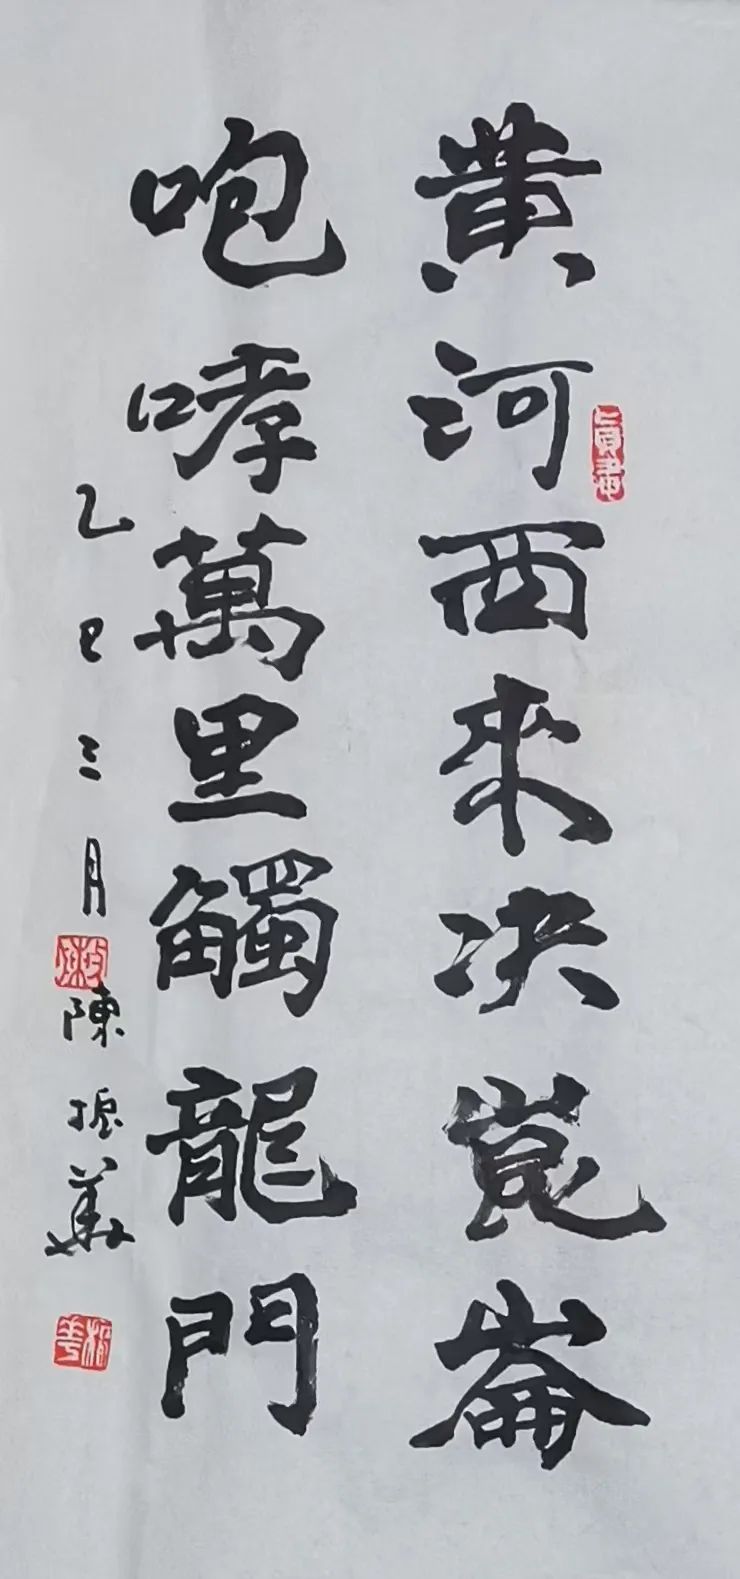 黄河西來決崑崙
咆哮萬里觸龍門
乙巳三月
陳振美